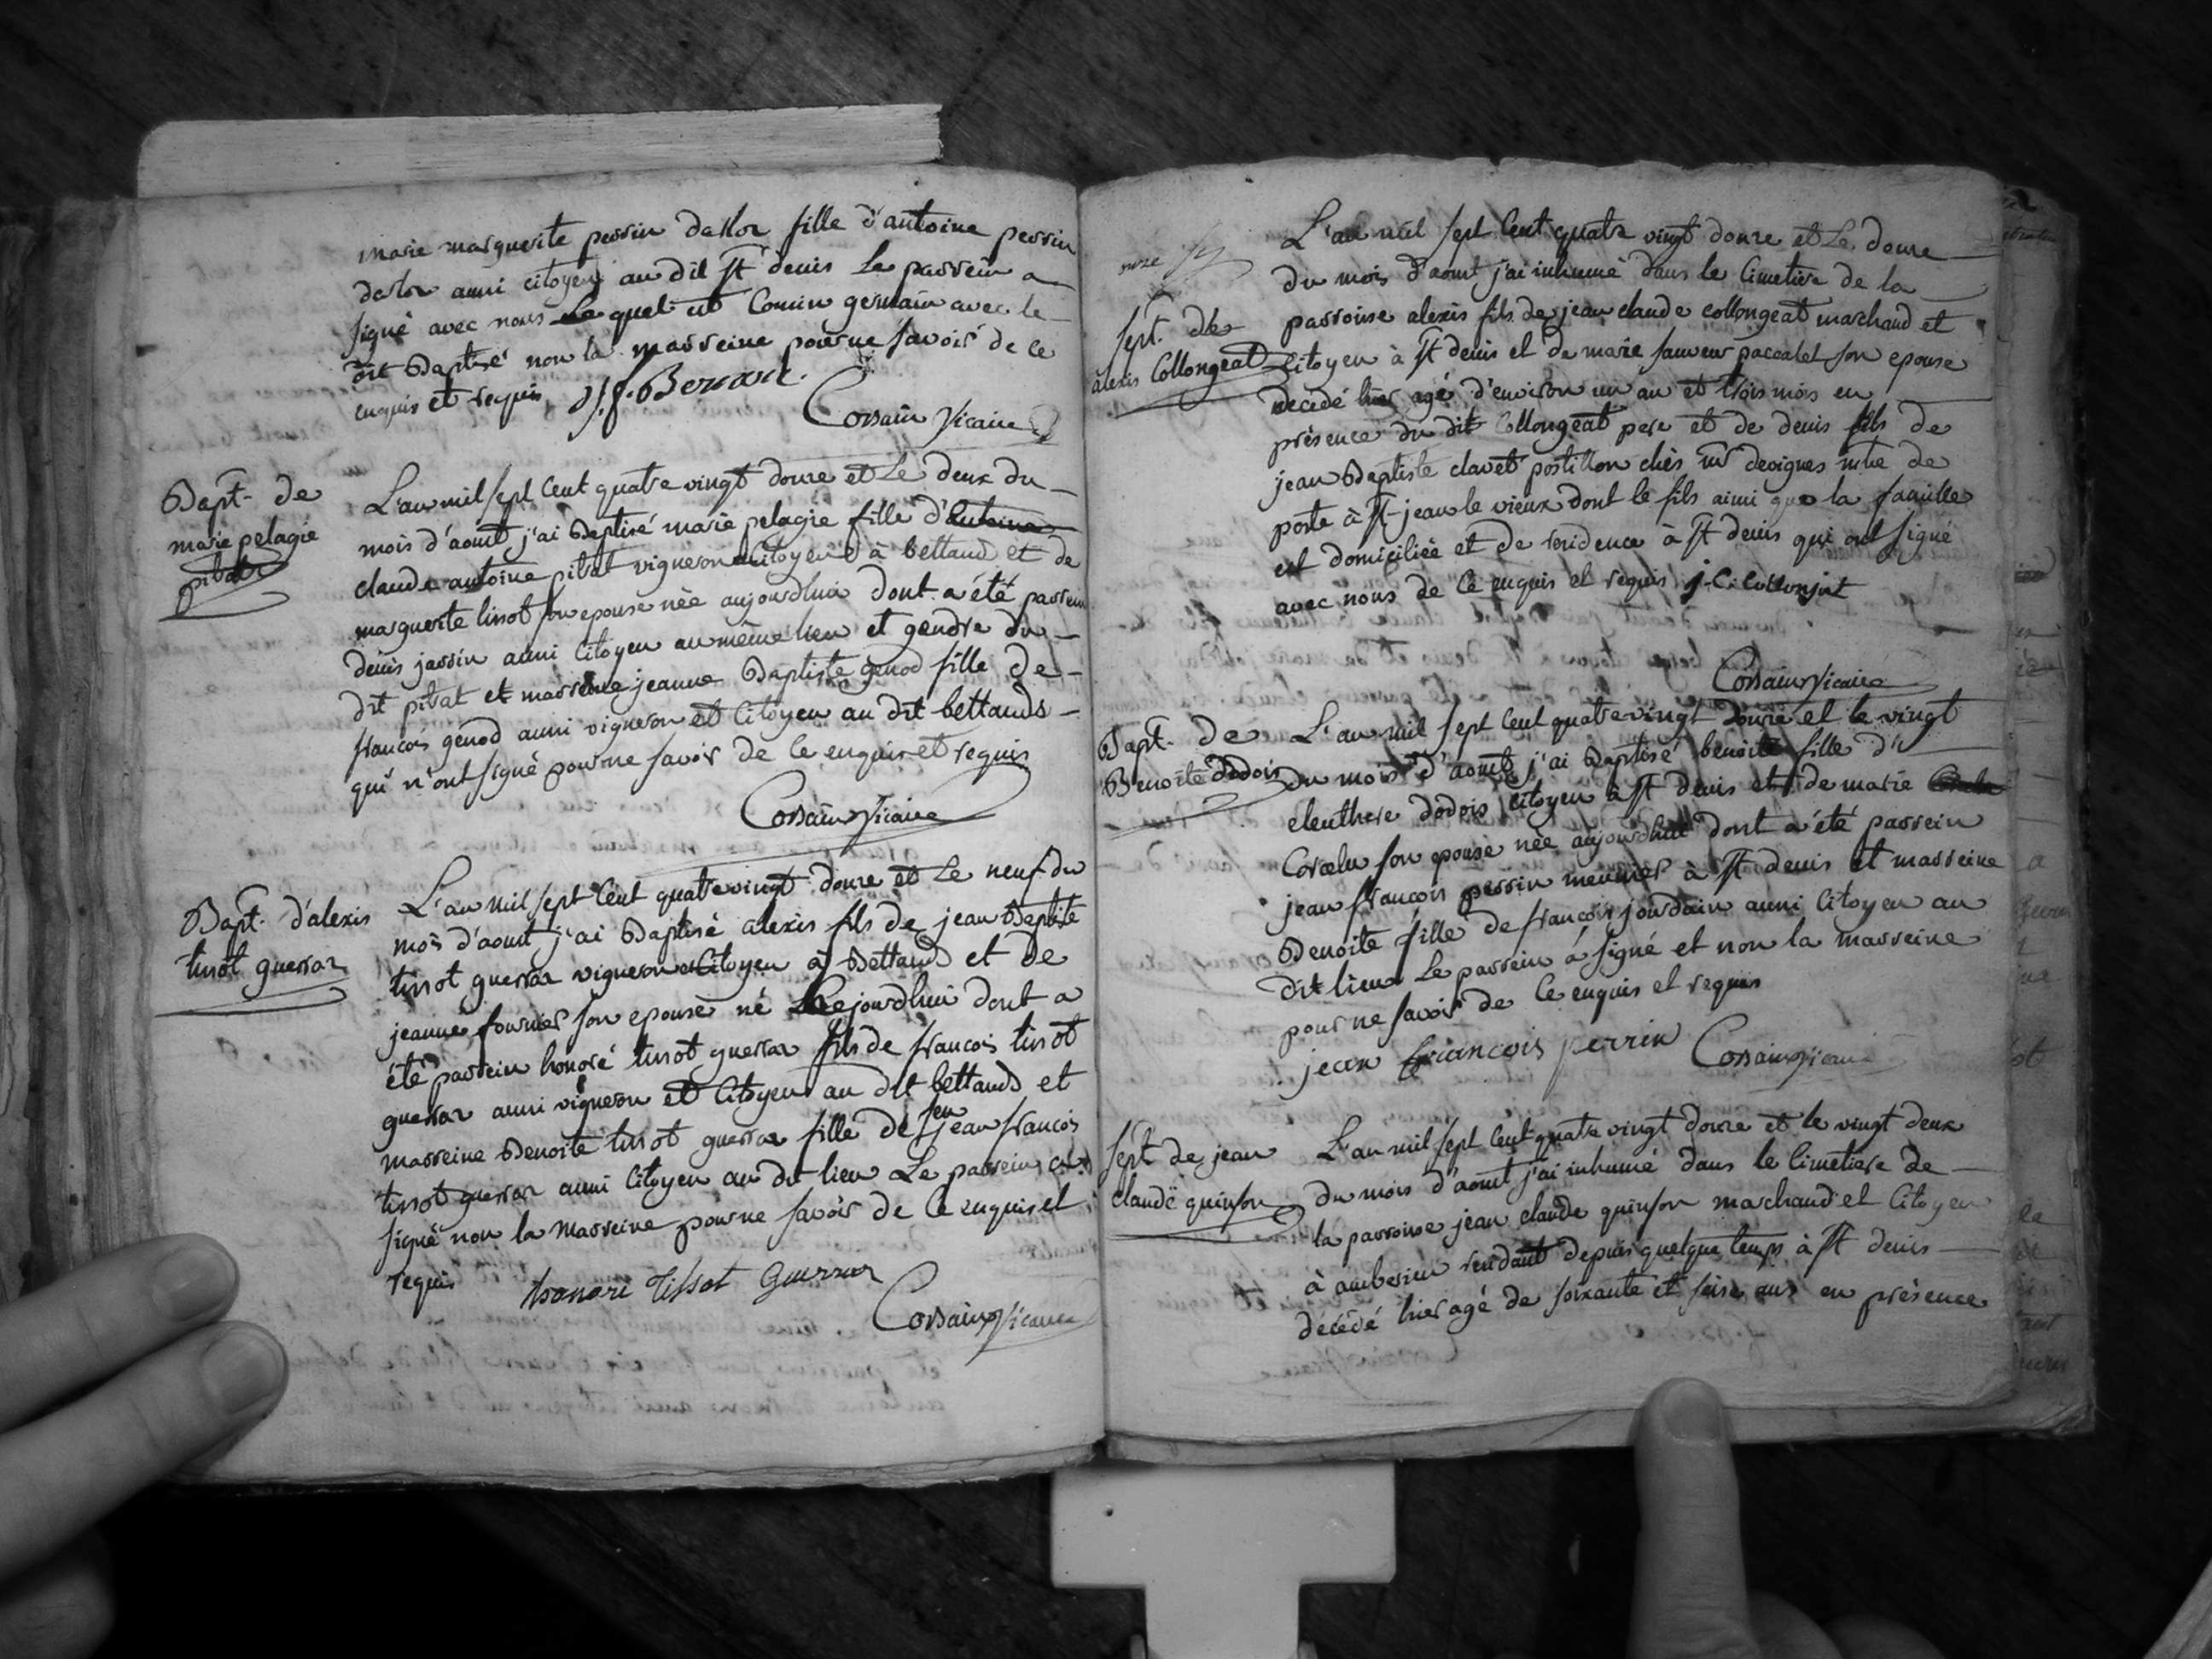 marie marguerite perrin dalloz fille d'antoine perrin
dalloz aussi citoyen au dit St denis Le parrein a
signé avec nous Le quel est Cousin germain avec le
dit Baptisé non la marreine pour ne savoir de ce
enquis et requis J. f. Bernard
Corsain Vicaire
Bapt. de
marie pelagie
pitrat
L'an mil sept Cent quatre vingt douze et Le deux du
mois d'aoust j'ai Baptisé marie pelagie fille d'antoine
claude antoine pitrat vigneron citoyen à bettand et de
marguerite tissot son epouse née aujourdhui dont a été parrein
denis jassin aussi Citoyen au même lieu et gendre du
dit pitrat et marreine jeanne Baptiste genod fille de
francois genod aussi vigneron et Citoyen au dit bettands
qui n'ont signé pour ne savoir de ce enquis et requis
Corsain Vicaire
Bapt. d'alexis
tissot guerraz
L'an mil sept Cent quatre vingt douze et Le neuf du
mois d'aoust j'ai Baptisé alexis fils de jean Baptiste
tissot guerraz vigneron et Citoyen à Bettands et de
jeanne fournier son epouse né cejourdhui dont a
été parrein honoré tissot guerraz fils de francois tissot
guerraz aussi vigneron et Citoyen au dit bettands et
marreine Benoite tissot guerraz fille de feu jean francois
tissot guerraz aussi Citoyen au dit lieu Le parrein a
signé non la marreine pour ne savoir de Ce enquis et
requis honoré Tissot Guerraz
Corsain Vicaire
sept. de
alexis Collongeat
L'an mil sept Cent quatre vingt douze et Le douze
du mois d'aoust j'ai inhumé dans le Cimetiere de la
parroisse alexis fils de jean claude collongeat marchand et
Citoyen à St denis et de marie sauveur paccalet son epouse
decedé hier agé d'environ un an et trois mois en
présence du dit Collongeat pere et de denis fils de
jean Baptiste clavet postillon chès mr devignes mtre de
poste à St jean le vieux dont le fils ainsi que la famille
est domiciliée et de residence à St denis qui ont signé
avec nous de Ce enquis et requis j. C. Collonjat
Corsain Vicaire
Bapt. de
Benoite dodois
L'an mil sept Cent quatre vingt douze et le vingt
du mois d'aoust j'ai Baptisé benoite fille d'
eleuthere dodois citoyen à St denis et de marie
Corcelu son epouse née aujourdhui dont a été parrein
jean francois perrin meunier à St denis et marreine
Benoite fille de francois jourdain aussi Citoyen au
dit lieu Le parrein a signé et non la marreine
pour ne savoir de Ce enquis et requis
jean francois perrin Corsain Vicaire
sept de jean
claude quinson
L'an mil sept Cent quatre vingt douze et le vingt deux
du mois d'aoust j'ai inhumé dans le Cimetiere de
la parroisse jean claude quinson marchand et Citoyen
à amberieu residant depuis quelque temps à St denis
décédé hier agé de soixante et seise ans en présence